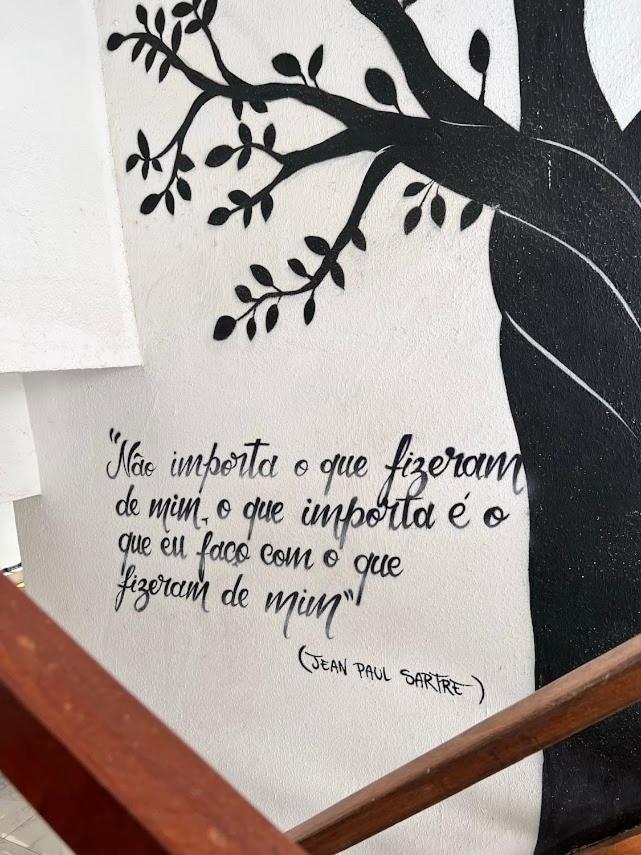 "Não importa o que fizeram
de mim, o que importa é o
que eu faço com o que
fizeram de mim"
(JEAN PAUL SARTRE)